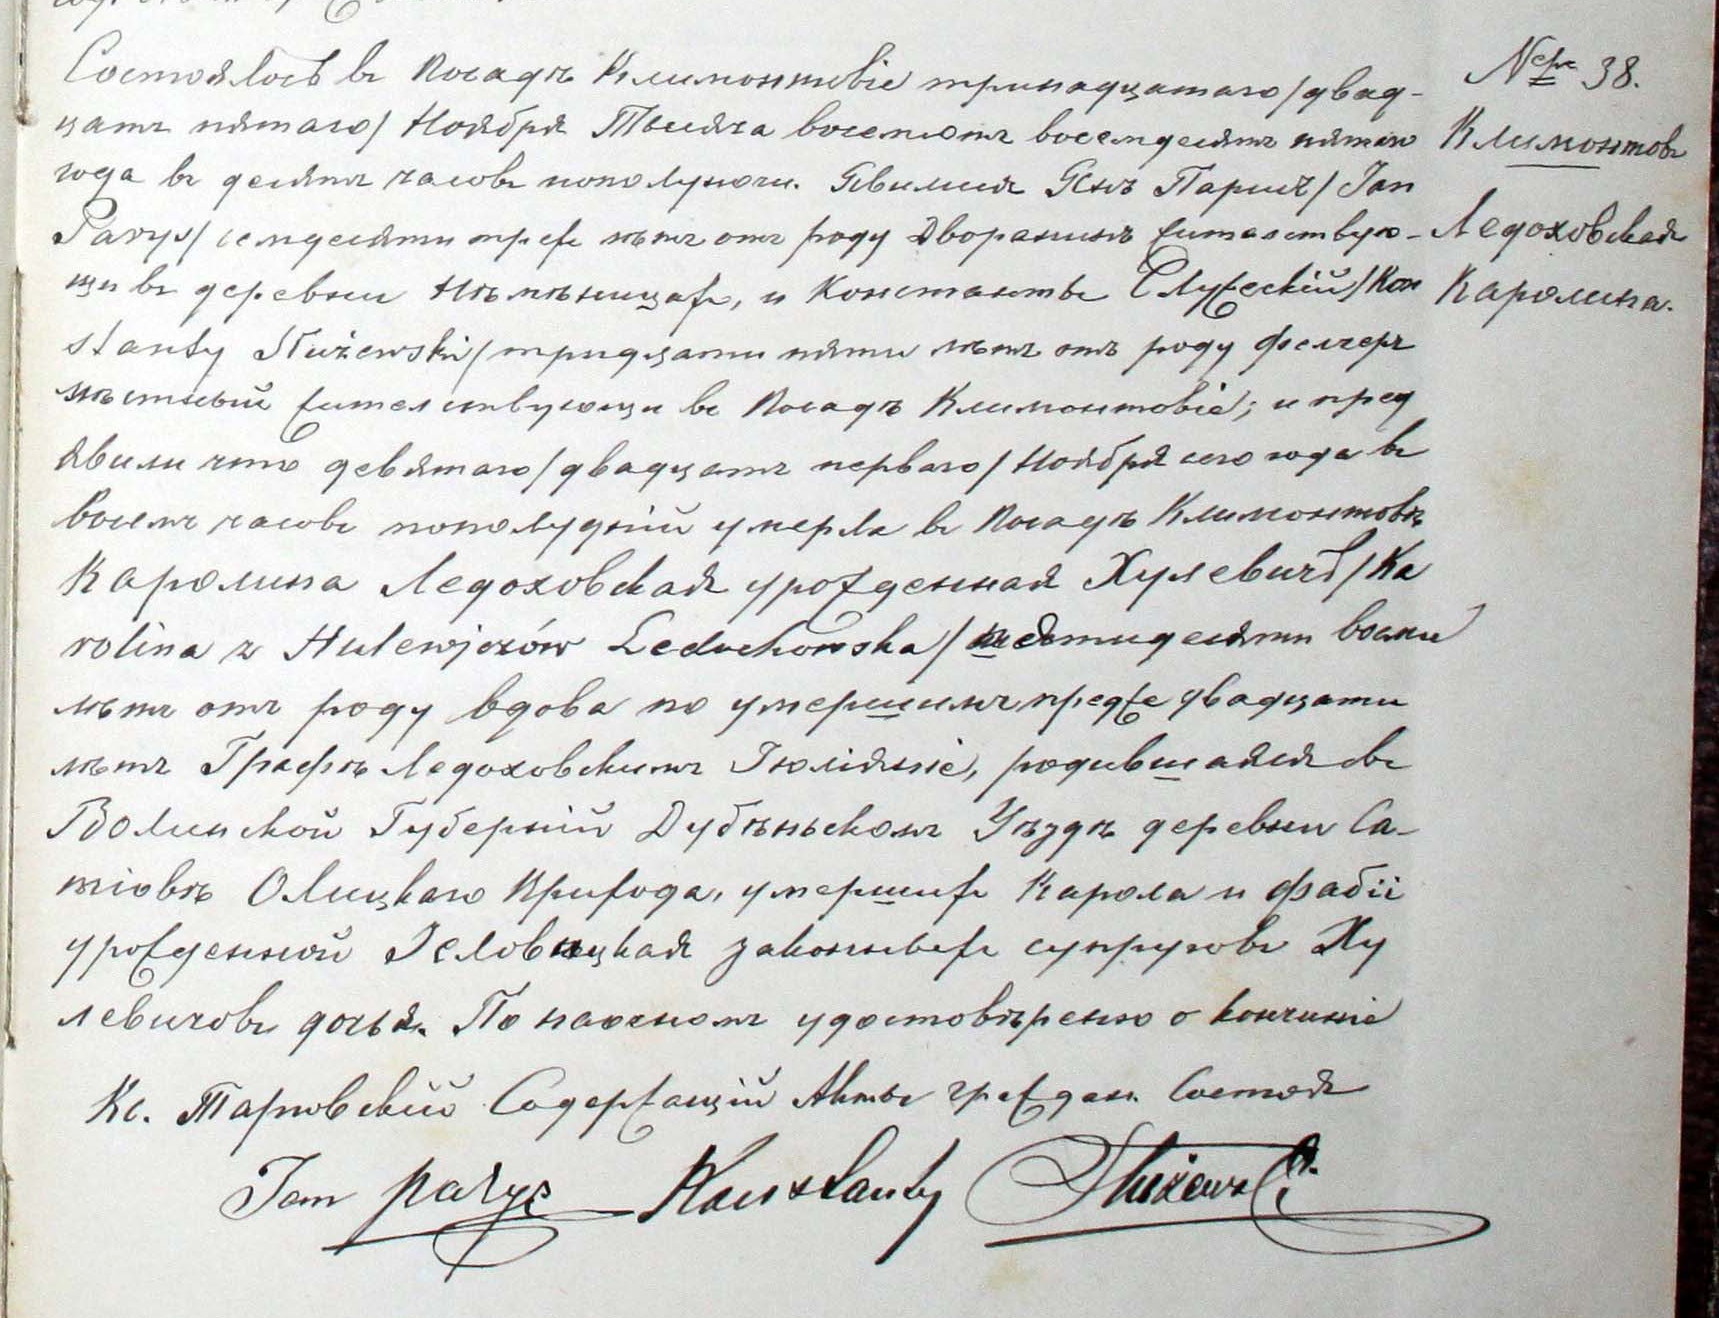 Состоялось въ Посадѣ Климонтовіе тринадцатаго/двад-
цать пятаго/ Ноября Тысяча восемсотъ восемдесятъ пятаго
года въ десять часовъ пополуночи. Явились Янъ Парысъ/Jan
Parys/ семдесяти трехъ лѣтъ отъ роду Дворанинъ жительствую-
щи въ деревни Нѣмѣницахъ, и Константы Служескій/Kon
stanty Służewski/тридцати пяти лѣтъ отъ роду фелчеръ
мѣстный жительствующи въ Посадѣ Климонтовіе; и пред
явили что девятаго/двадцать перваго/Ноября сего года въ
восемъ часовъ пополудній умерла въ Посадѣ Климонтовѣ
Каролина Ледоховская урожденная Хулевичъ/Ka
rolina z Hulewjczów Leduchowska/ шестидесяти восми
лѣтъ отъ роду вдова по умершимъ предже двадцати
лѣтъ Графѣ Ледоховскимъ Іюліяніе, родившаяся въ
Волинской Губерній Дубѣньскомъ Уѣздѣ деревни Са-
тіовѣ Олицкаго Прихода, умершихъ Карола и Фабіи
урожденной Іеловицкая законныхъ супруговъ Ху
левичовъ дочья. По наочномъ удостовѣренію о кончиніе
Кс. Тарновскій Содержащій Акты граждан. Состоя
Jan Parys Konstanty Służewski
Nер 38.
Климонтовъ
Ледоховская
Каролина.